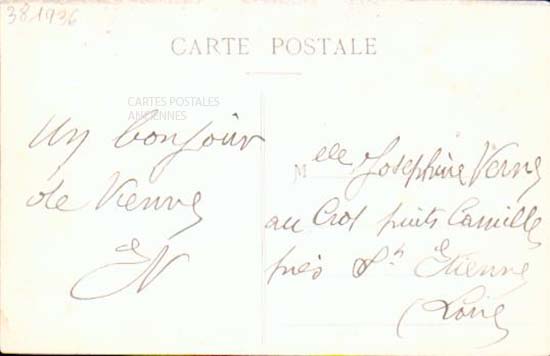 38.1936
CARTE POSTALE
CARTES POSTALES
ANCIENNES
Un bonjour
de Vienne
EN
Melle Josephine Verne
au Crot puits Camille
près St Etienne
(Loire)